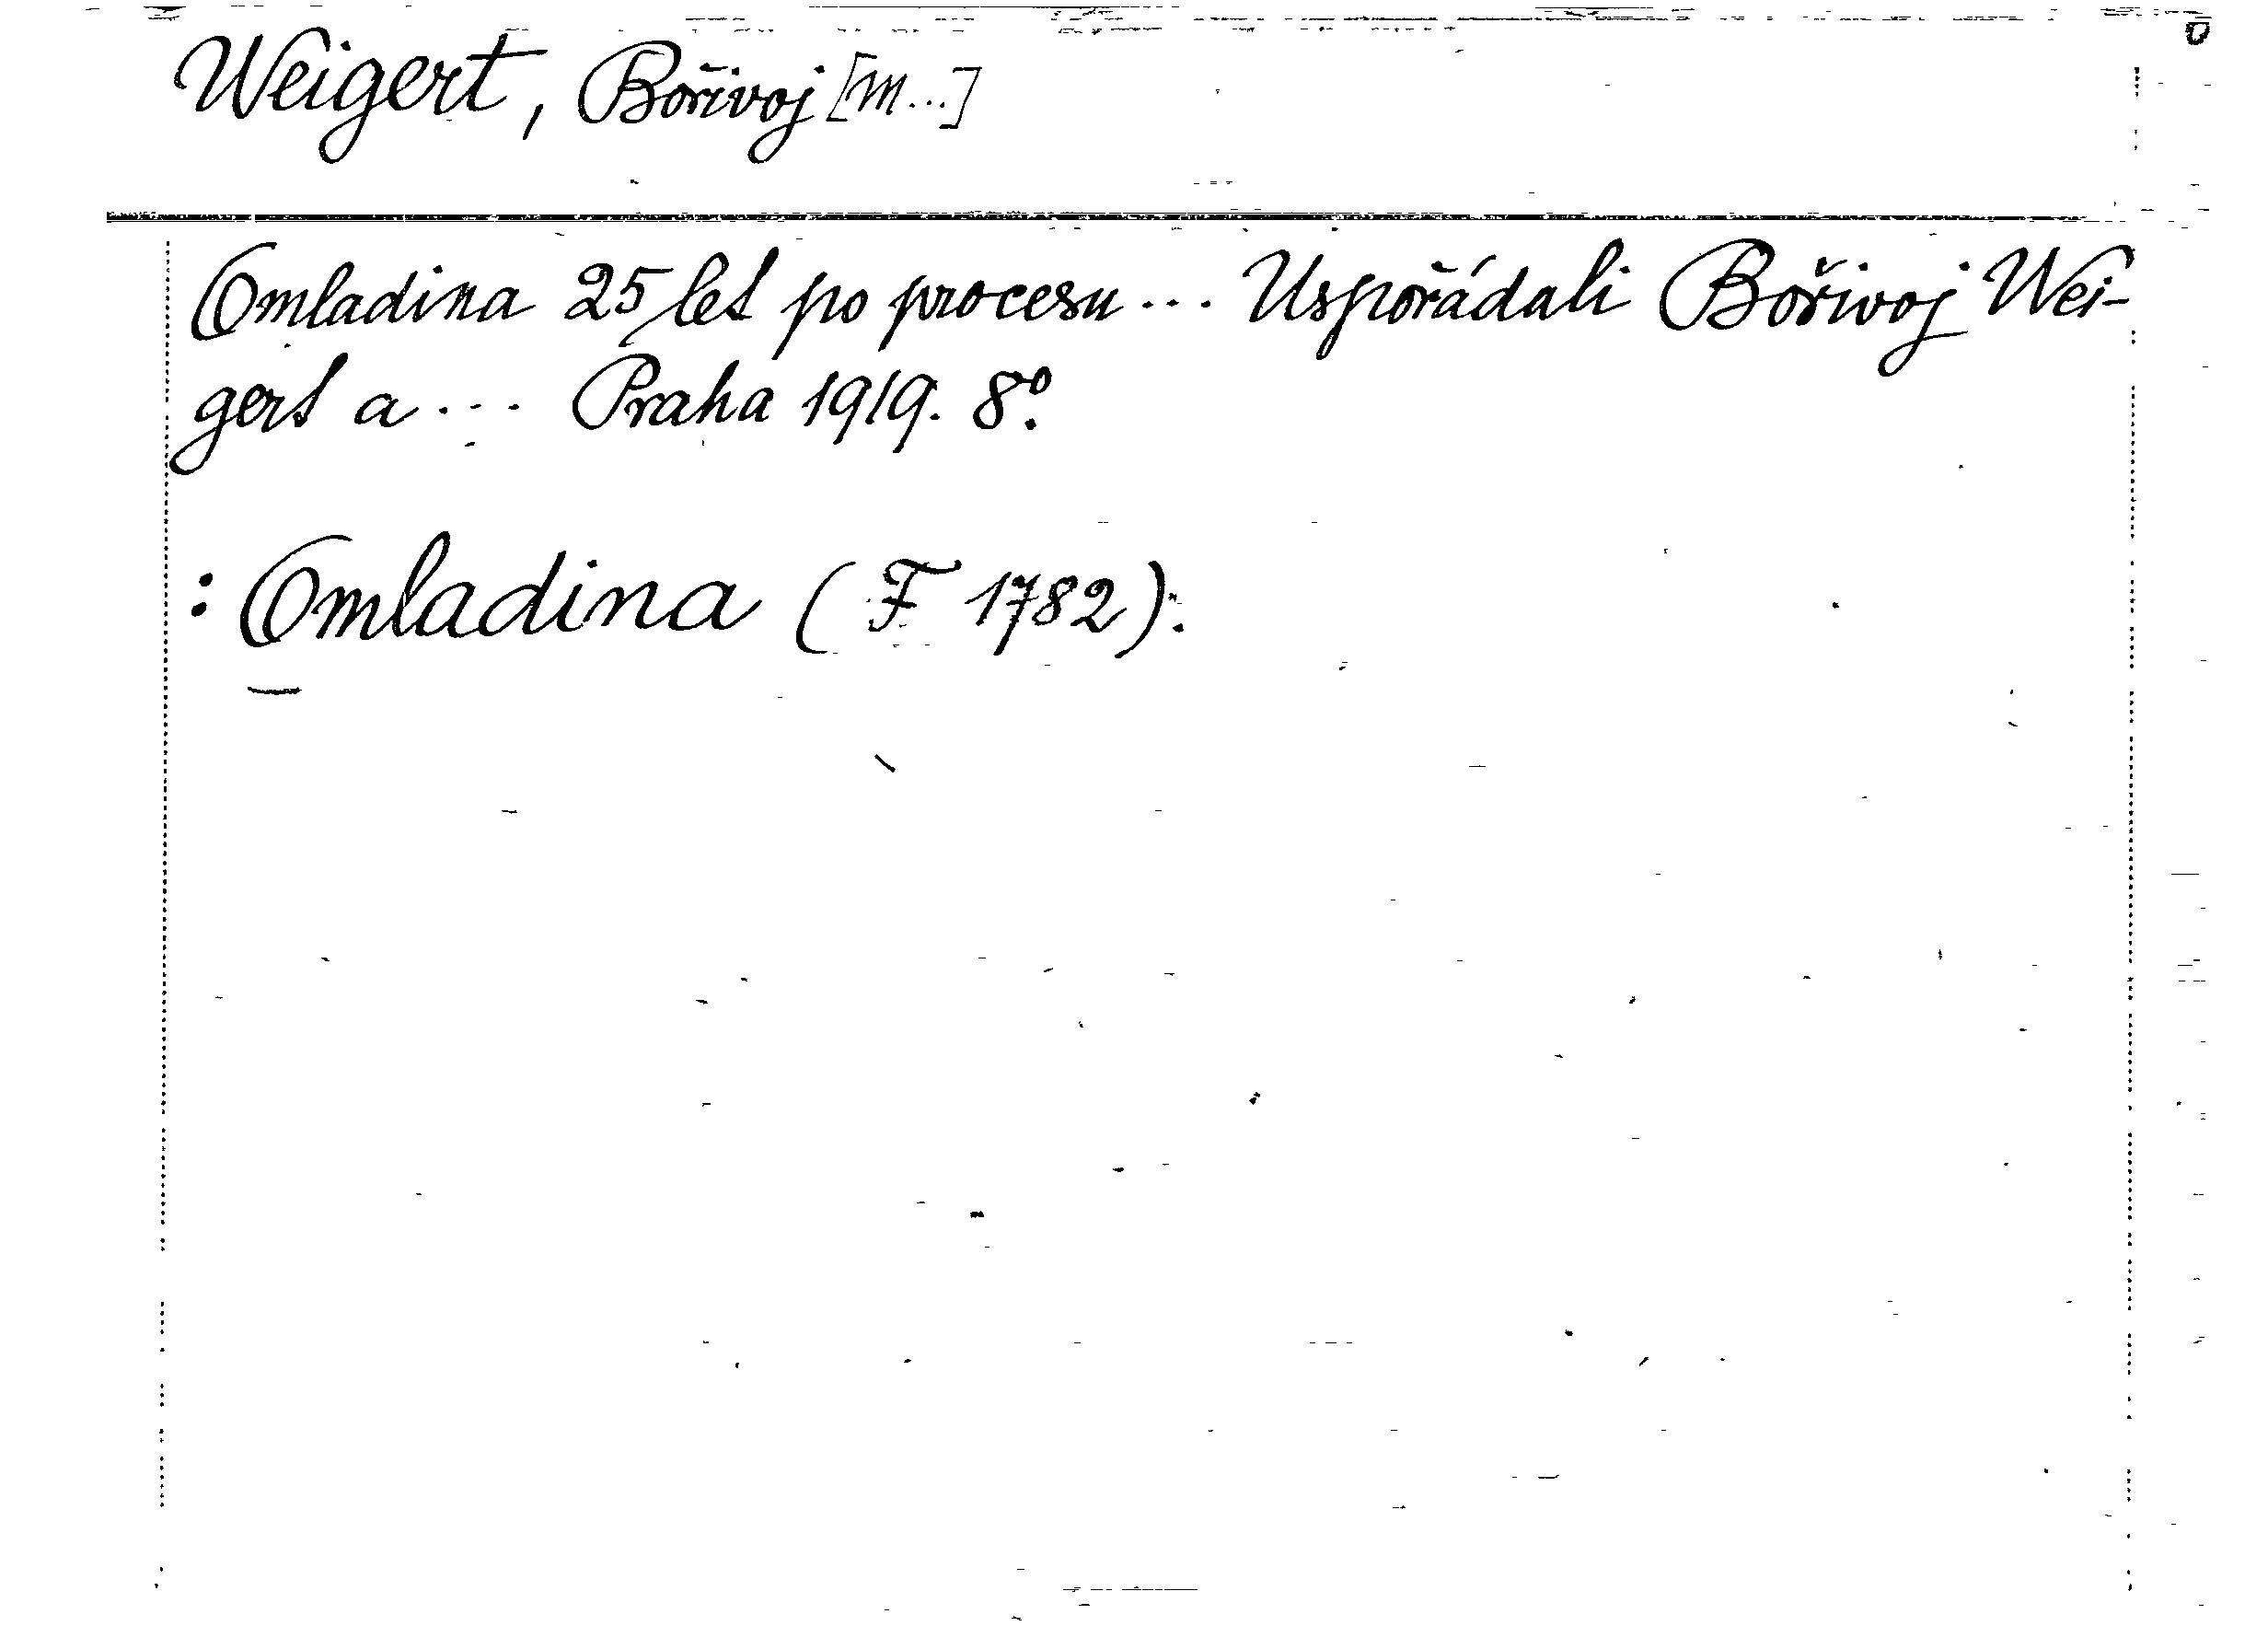 Weigert, Bořivoj [m...]
Omladina 25 let po procesu... Uspořádali Bořivoj Wei-
gert a... Praha 1919. 8º.
: Omladina (F 1782).